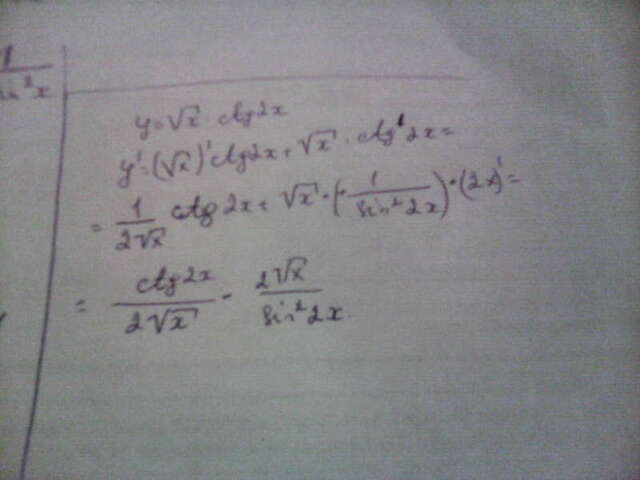 1
sin²x
y=√x ctg2x
y'=(√x)'ctg2x+√x · ctg'2x=
= 1/(2√x) ctg 2x + √x · (- 1/(sin² 2x)) · (2x)' =
= ctg2x/(2√x) - 2√x/(sin² 2x).